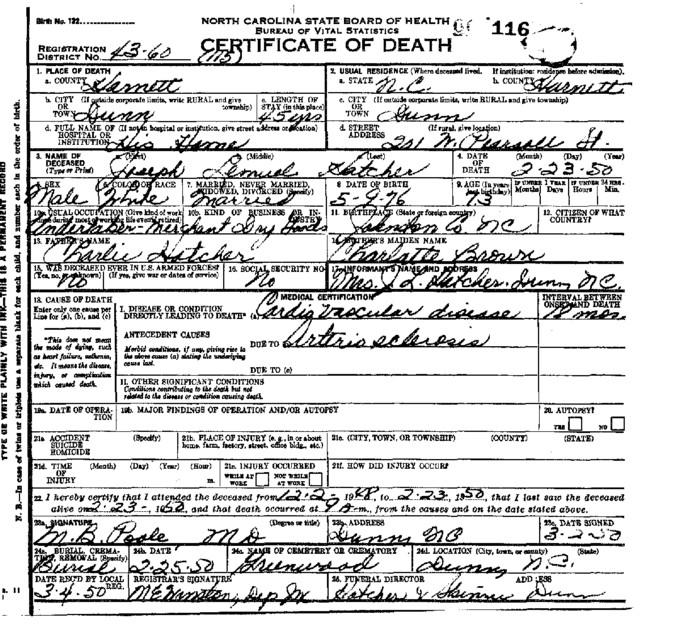 Birth No. 132
NORTH CAROLINA STATE BOARD OF HEALTH
BUREAU OF VITAL STATISTICS
116
REGISTRATION DISTRICT No. 43-60
CERTIFICATE OF DEATH
1. PLACE OF DEATH
a. COUNTY Harnett
2. USUAL RESIDENCE (Where deceased lived. If institution: residence before admission).
a. STATE N.C. b. COUNTY Harnett
b. CITY (If outside corporate limits, write RURAL and give township) OR TOWN Dunn
c. LENGTH OF STAY (in this place) 45 yrs
c. CITY (If outside corporate limits, write RURAL and give township) OR TOWN Dunn
d. FULL NAME OF (If not in hospital or institution, give street address or location) HOSPITAL OR INSTITUTION His Home
d. STREET ADDRESS (If rural, give location) 201 W. Pearsall St.
3. NAME OF DECEASED (Type or Print) (First) Joseph (Middle) Lemuel (Last) Hatcher
4. DATE OF DEATH (Month) (Day) (Year) 2-23-50
5. SEX Male
6. COLOR OR RACE White
7. MARRIED, NEVER MARRIED, WIDOWED, DIVORCED (Specify) Married
8 DATE OF BIRTH 5-9-76
9. AGE (In years last birthday) 73
IF UNDER 1 YEAR Months Days
IF UNDER 24 HRS. Hours Min.
10a. USUAL OCCUPATION (Give kind of work done during most of working life even if retired) Undertaker-Merchant
10b. KIND OF BUSINESS OR INDUSTRY Dry Goods
11. BIRTHPLACE (State or foreign country) Johnston Co NC
12. CITIZEN OF WHAT COUNTRY?
13. FATHER'S NAME Charlie Hatcher
14. MOTHER'S MAIDEN NAME Charlotte Brown
15. WAS DECEASED EVER IN U.S. ARMED FORCES? (Yes, no, or unknown) (If yes, give war or dates of service) No
16. SOCIAL SECURITY NO. No
17. INFORMANT'S NAME AND ADDRESS Mrs. J L Hatcher, Dunn NC.
18. CAUSE OF DEATH
Enter only one cause per line for (a), (b), and (c)
MEDICAL CERTIFICATION
INTERVAL BETWEEN ONSET AND DEATH
I. DISEASE OR CONDITION DIRECTLY LEADING TO DEATH* (a) Cardio Vascular disease 18 mos.
*This does not mean the mode of dying, such as heart failure, asthenia, etc. It means the disease, injury, or complication which caused death.
ANTECEDENT CAUSES
Morbid conditions, if any, giving rise to the above cause (a) stating the underlying cause last.
DUE TO Arterio sclerosis
DUE TO (c)
II. OTHER SIGNIFICANT CONDITIONS
Conditions contributing to the death but not related to the disease or condition causing death.
19a. DATE OF OPERATION
19b. MAJOR FINDINGS OF OPERATION AND/OR AUTOPSY
20. AUTOPSY?
YES NO
21a. ACCIDENT SUICIDE HOMICIDE (Specify)
21b. PLACE OF INJURY (e. g., in or about home, farm, factory, street, office bldg., etc.)
21c. (CITY, TOWN, OR TOWNSHIP) (COUNTY) (STATE)
21d. TIME OF INJURY (Month) (Day) (Year) (Hour) m.
21e. INJURY OCCURRED
WHILE AT WORK NOT WHILE AT WORK
21f. HOW DID INJURY OCCUR?
22. I hereby certify that I attended the deceased from 12-2-, 1948, to 2-23, 1950, that I last saw the deceased
alive on 2-23-, 1950, and that death occurred at m., from the causes and on the date stated above.
23a. SIGNATURE (Degree or title) M. B. Poole MD
23b. ADDRESS Dunn NC
23c. DATE SIGNED 3-2-50
24a. BURIAL, CREMATION, REMOVAL (Specify) Burial
24b. DATE 2-25-50
24c. NAME OF CEMETERY OR CREMATORY Greenwood
24d. LOCATION (City, town, or county) (State) Dunn, N.C.
DATE REC'D BY LOCAL REG. 3-4-50
REGISTRAR'S SIGNATURE
25. FUNERAL DIRECTOR ADDRESS Hatcher & Skinner Dunn
TYPE OR WRITE PLAINLY WITH INK—THIS IS A PERMANENT RECORD
N. B.—In case of twins or triplets use a separate blank for each child, and number each in the order of birth.